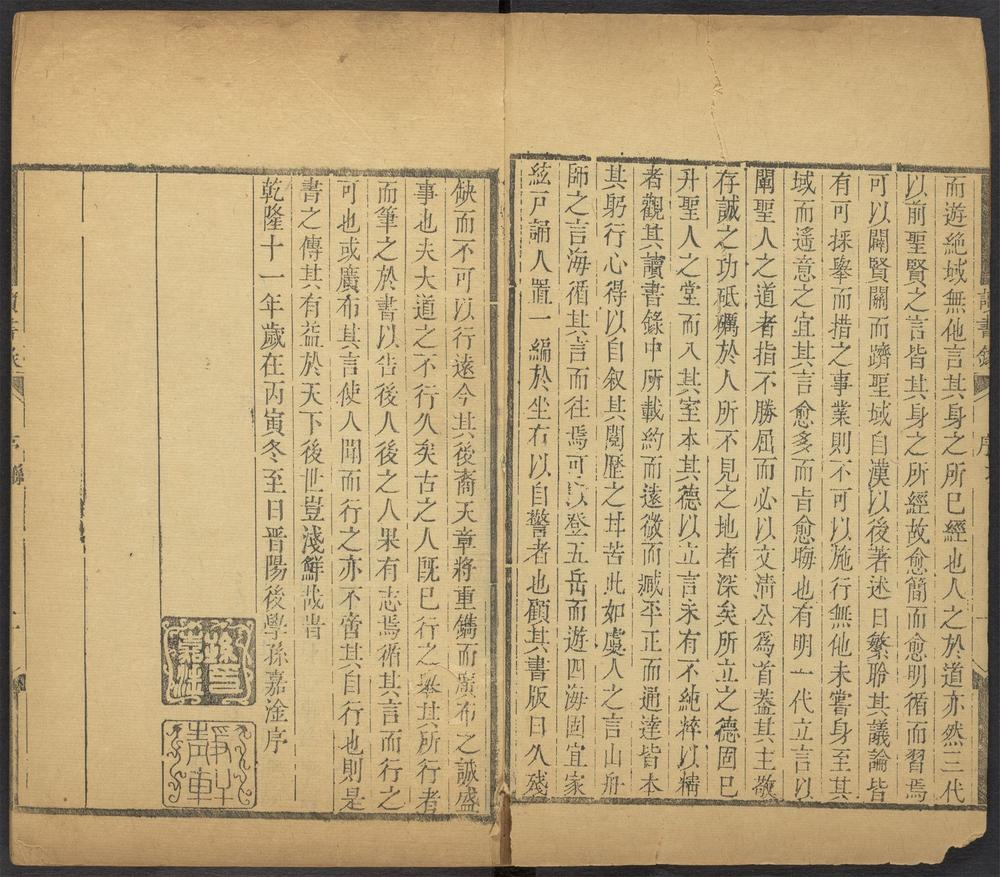 讀書錄
序
而游絶域無他言其身之所已經也人之於道亦然三代
以前聖賢之言皆其身之所經故愈簡而愈明循而習焉
可以闢賢關而躋聖域自漢以後著述日繁聆其議論皆
有可採舉而措之事業則不可以施行無他未嘗身至其
域而遙意之宜其言愈多而旨愈晦也有明一代立言以
闡聖人之道者指不勝屈而必以文淸公爲首蓋其主敬
存誠之功砥礪於人所不見之地者深矣所立之德固已
升聖人之堂而入其室本其德以立言未有不純粹以精
者觀其讀書錄中所載約而遠微而臧平正而通達皆本
其躬行心得以自叙其閱歷之甘苦此如虞人之言山舟
師之言海循其言而往焉可以登五岳而遊四海固宜家
絃戸誦人置一編於坐右以自警者也顧其書版日久殘
缺而不可以行遠今其後裔天章將重鐫而廣布之誠盛
事也夫大道之不行久矣古之人旣已行之舉其所行者
而筆之於書以告後人後之人果有志焉循其言而行之
可也或廣布其言使人聞而行之亦不啻其自行也則是
書之傳其有益於天下後世豈淺鮮哉旹
乾隆十一年歲在丙寅冬至日晋陽後學孫嘉淦序